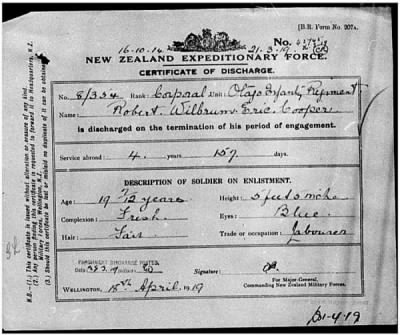 [B.R. Form No. 207A.
16-10-14 21-3-19
No.
NEW ZEALAND EXPEDITIONARY FORCE.
CERTIFICATE OF DISCHARGE.
No. 8/334 Rank: Corporal Unit: Otago Infantry Regiment
Name: Robert Wilbrum Eric Cooper
is discharged on the termination of his period of engagement.
Service abroad: 4 years 157 days.
DESCRIPTION OF SOLDIER ON ENLISTMENT.
Age: 19 years Height: 5 feet
Complexion: Fresh Eyes: Blue
Hair: Fair Trade or occupation: Labourer
PARCHMENT DISCHARGE POSTED
Date Signature:
For Major-General,
Commanding New Zealand Military Forces.
WELLINGTON, 15th April 1919
1-4-19
N.B.—(1.) This certificate is issued without alteration or erasure of any kind.
(2.) Any person finding this certificate is requested to forward it to Headquarters, N.Z.
Military Forces, Wellington, N.Z.
(3.) Should this certificate be lost or mislaid no duplicate of it can be obtained.